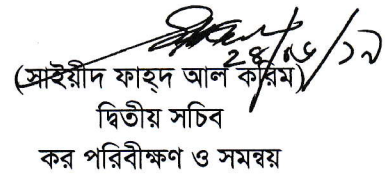 ২৪/০৬/১৯
(সাইয়ীদ ফাহ্‌দ আল করিম)
দ্বিতীয় সচিব
কর পরিবীক্ষণ ও সমন্বয়